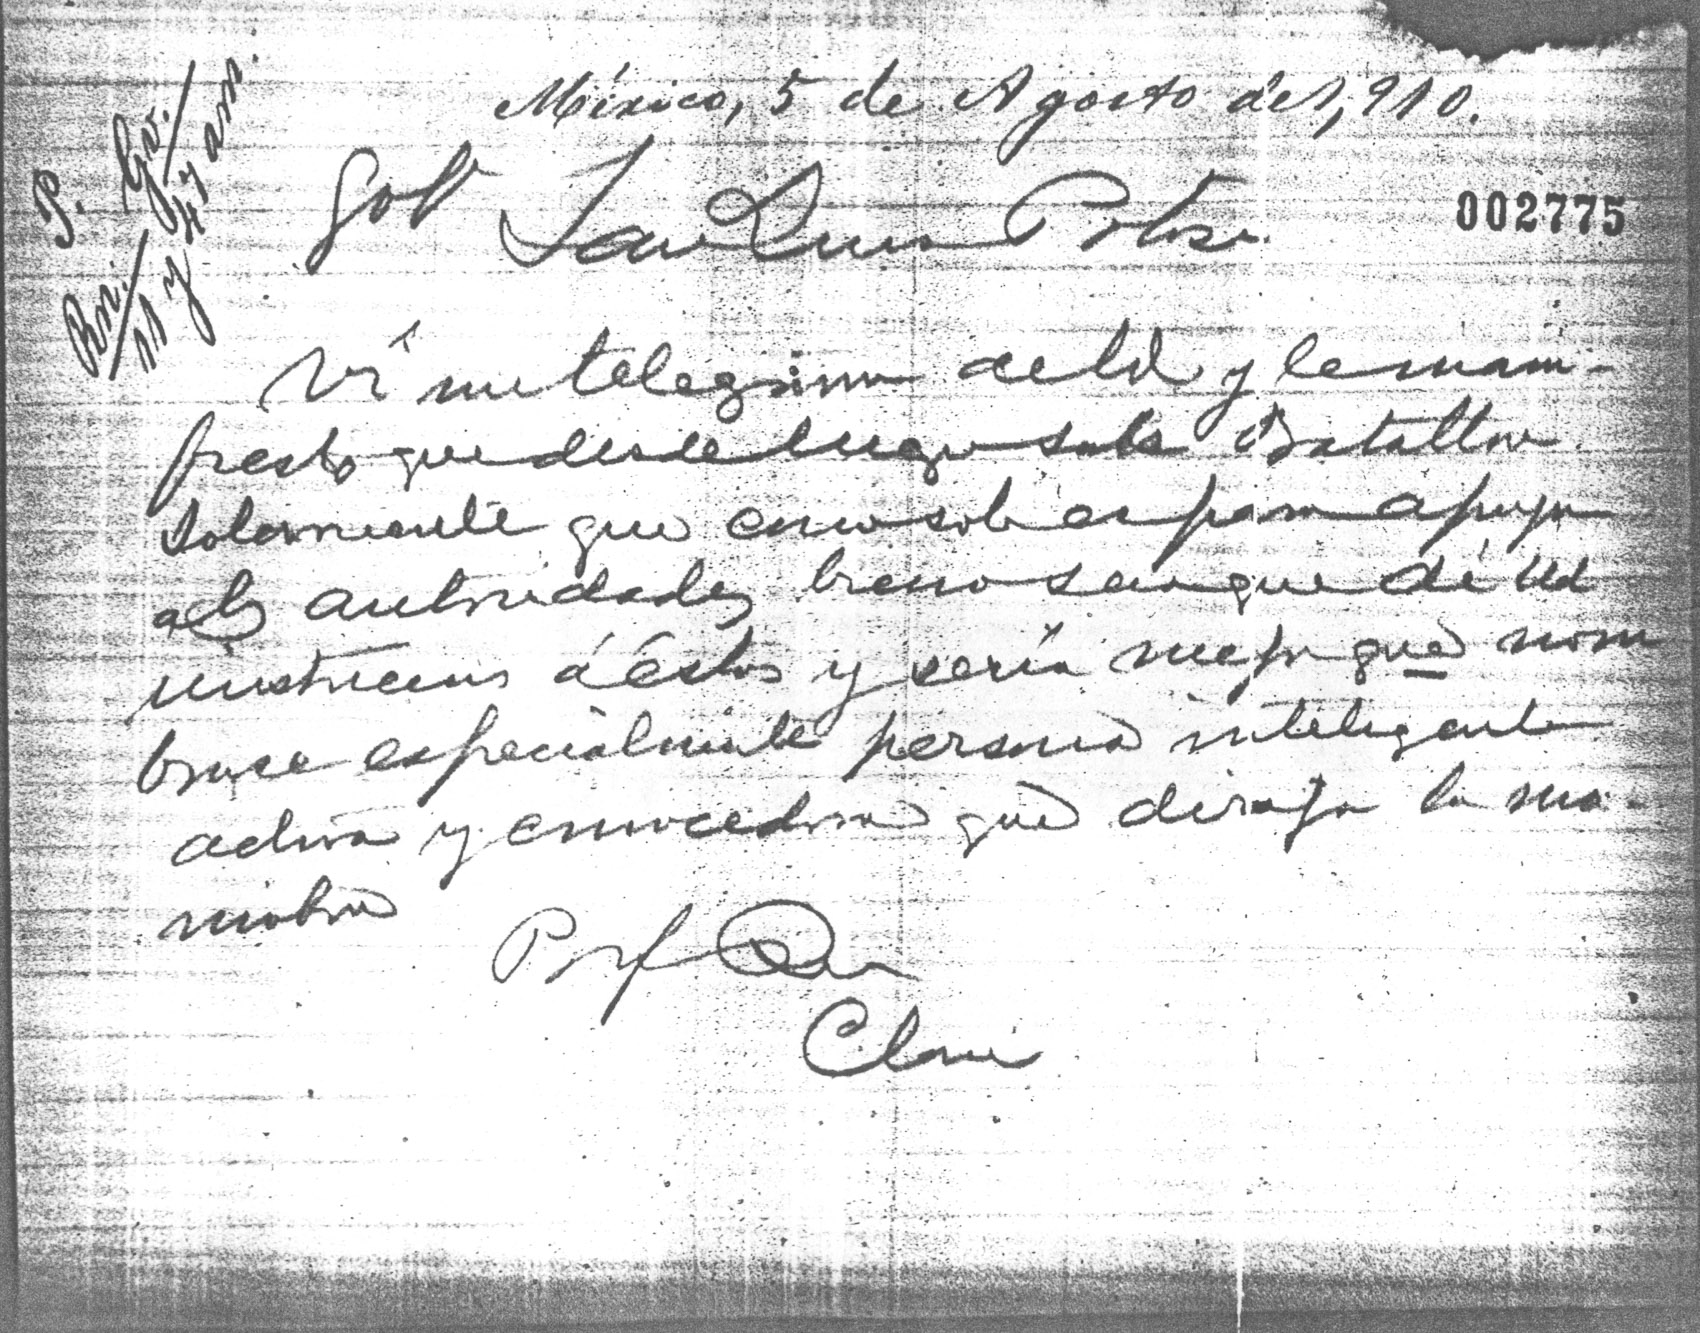 México, 5 de Agosto de 1,910.
P. Gv.
Gobr San Luis Potosi.
002775
Bn. 11 y
Vi mi telegrama de Ud y le mani-
fiesto que desde luego sale Batallon
solamente que como solo es para apoyar
a las autoridades bueno sera que dé Ud
instrucciones á éstas y sería mejor que nom
brase especialmente persona inteligente
activa y conocedora que dirija la ma-
niobra
Porf Diaz
Clave